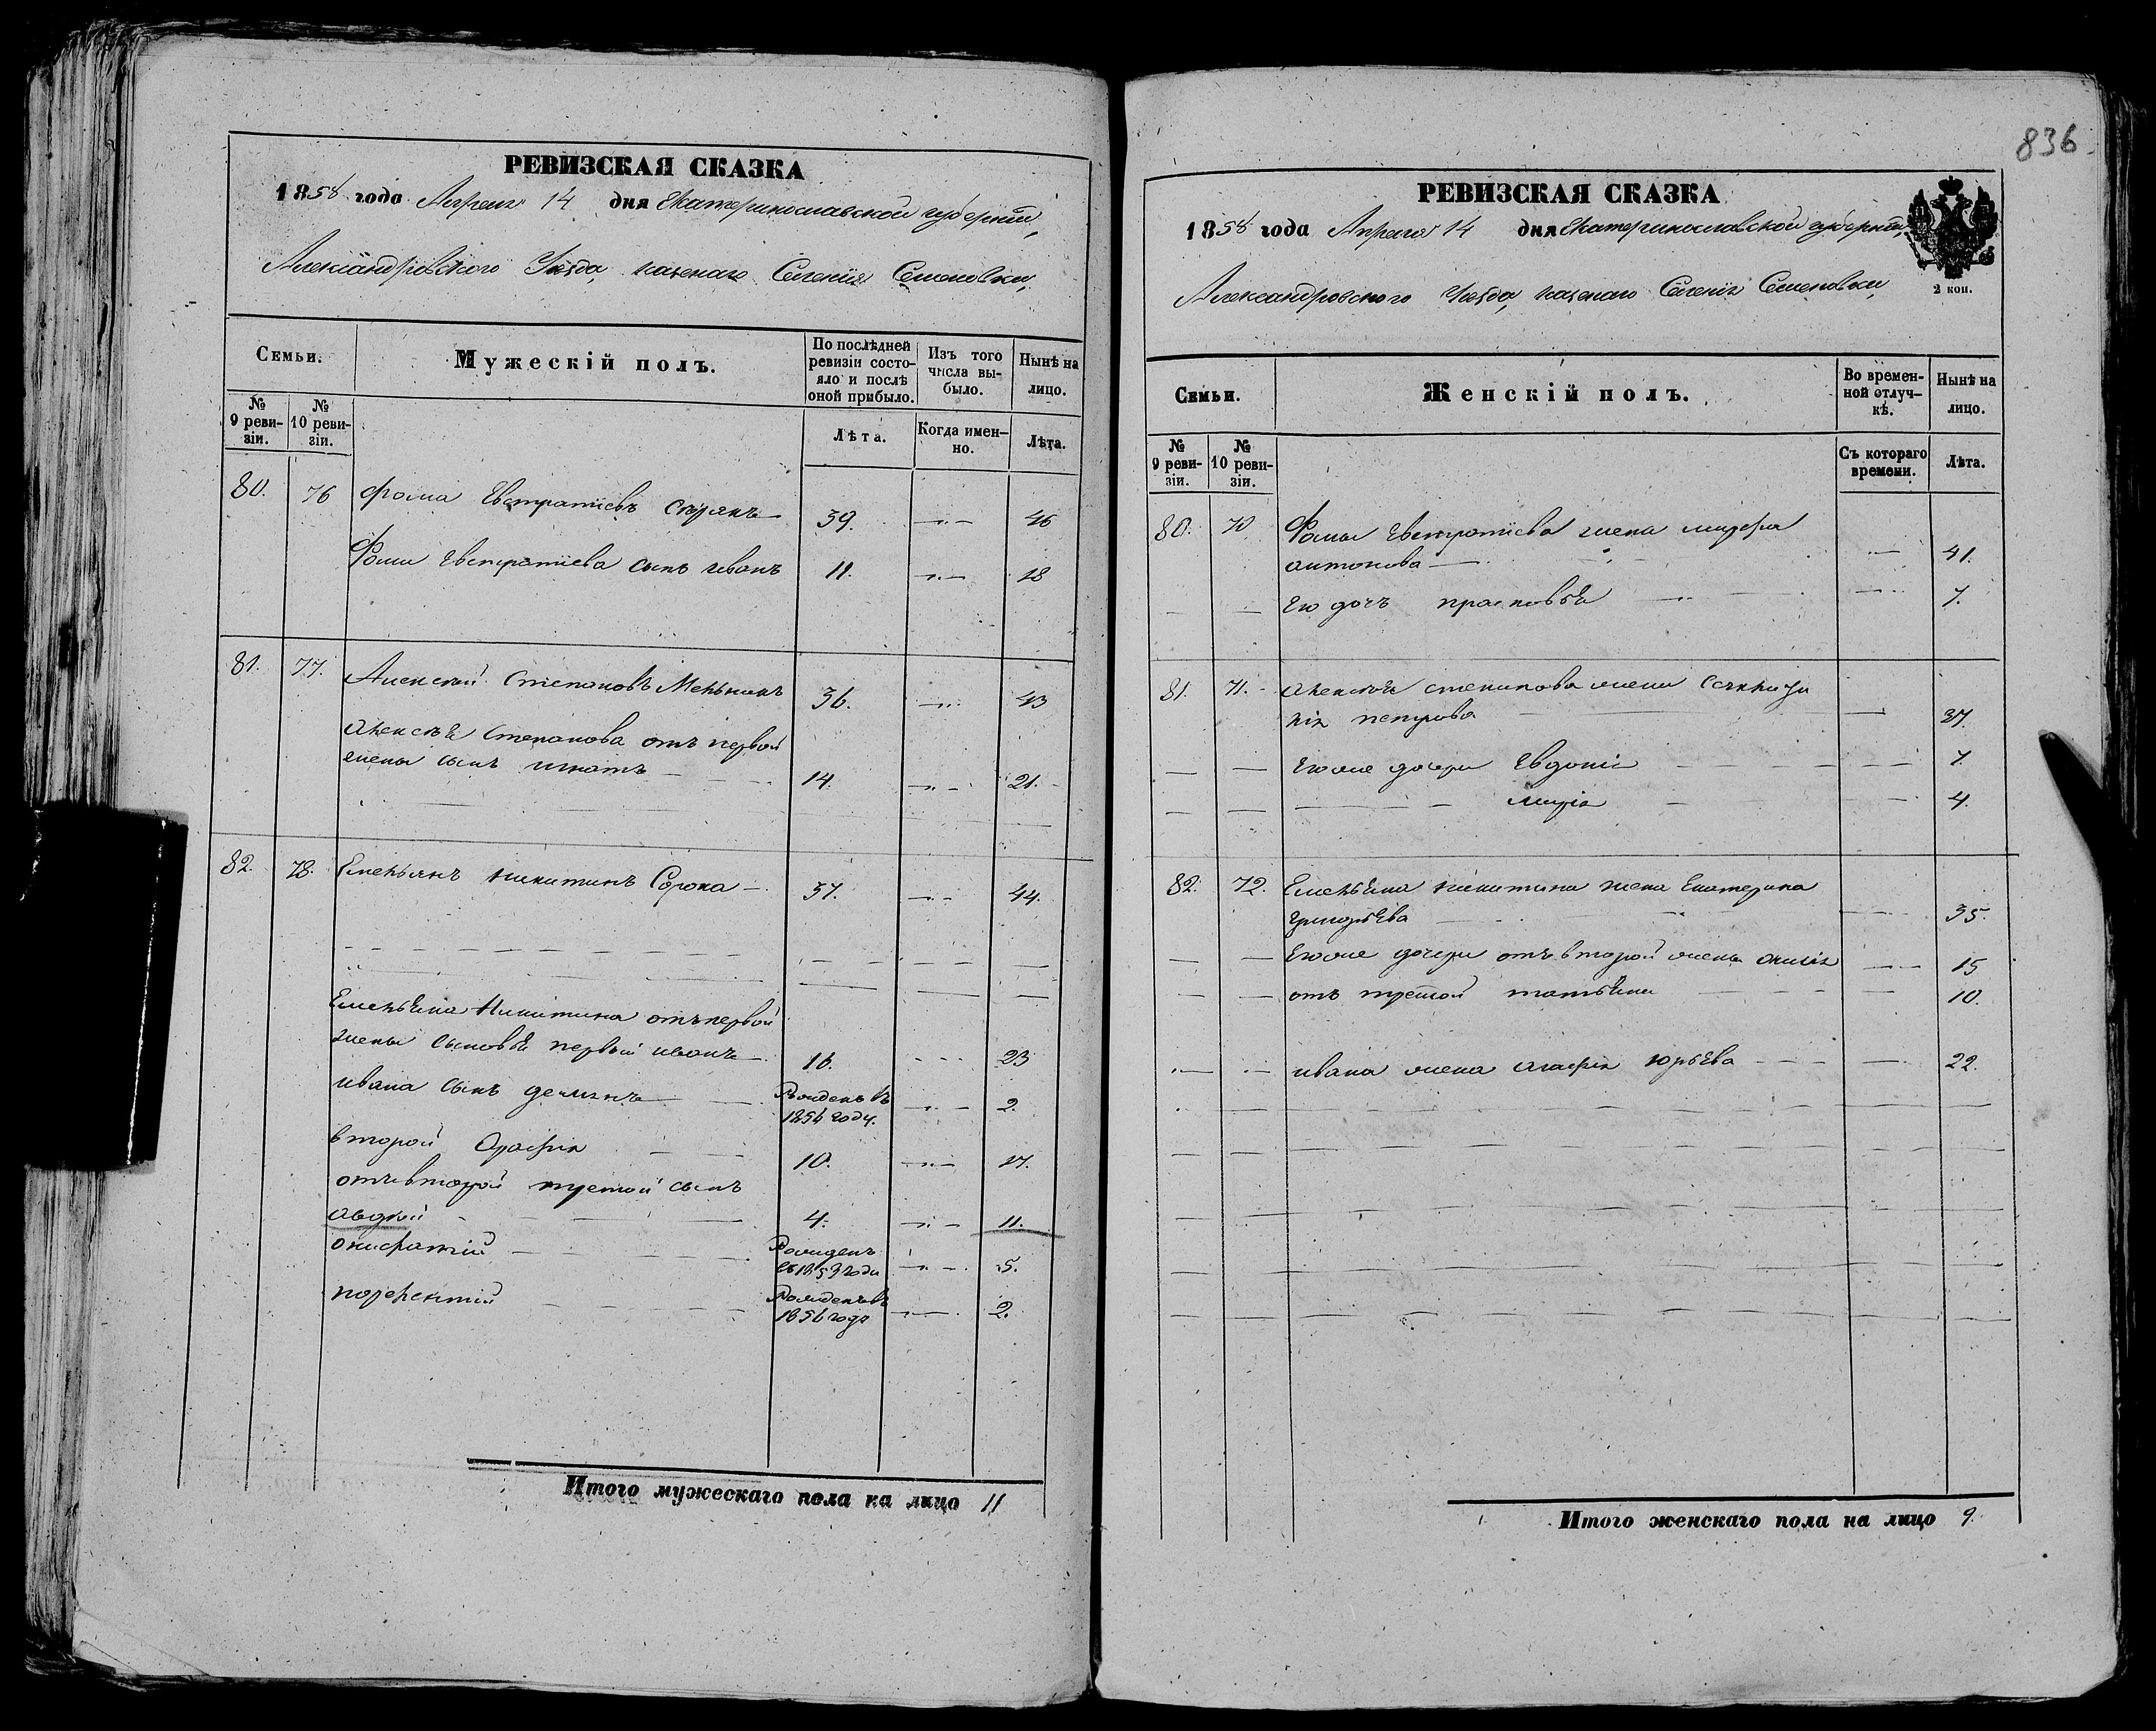 РЕВИЗСКАЯ СКАЗКА
1858 года Апреля 14 дня Екатеринославской губернии,
Александровского Уезда, казенаго Селения Семеновки,
Семьи.
Мужескій полъ.
По послѣдней ревизіи состояло и послѣ оной прибыло.
Изъ того числа выбыло.
Нынѣ на лицо.
№ 9 ревизіи.
№ 10 ревизіи.
Лѣта.
Когда именно.
Лѣта.
80. 76 Фома Евстратіевъ 39. 46
Фомы Евстратіева сынъ иванъ 11. 18
81. 77. Алексей Степановъ Мельникъ 36. 43
Алексѣя Степанова отъ первой
жены сынъ игнатъ 14. 21.
82. 78. Емельянъ никитинъ Сорока 37. 44.
Емельяна Никитина отъ первой
жены сыновья первый иванъ 16. 23
ивана сынъ демянъ Рожденъ въ 1856 году. 2.
второй 10. 17.
отъ второй третой сынъ
авдей 4. 11.
онисфатій Рожденъ въ 1853 году 5.
порфентій Рожденъ въ 1856 году 2.
Итого мужескаго пола на лицо 11
836
РЕВИЗСКАЯ СКАЗКА
1858 года Апреля 14 дня Екатеринославской губерніи,
Александровского Уезда, казенаго Селенія Семеновки,
2 коп.
Семьи.
Женскій полъ.
Во временной отлучкѣ.
Нынѣ на лицо.
№ 9 ревизіи.
№ 10 ревизіи.
Съ котораго времени.
Лѣта.
80. 70 Фомы Евстратіева жена
антонова 41.
Его дочь прасковья 7.
81. 71. Алексѣя степанова жена
петрова 37.
Его же дочери Евдокія 7.
марія 4.
82. 72. Емельяна никитина жена Екатерина
григорьева 35.
Его же дочери отъ второй жены 15
отъ третой татьяна 10.
ивана жена агафія юрьева 22.
Итого женскаго пола на лицо 9.